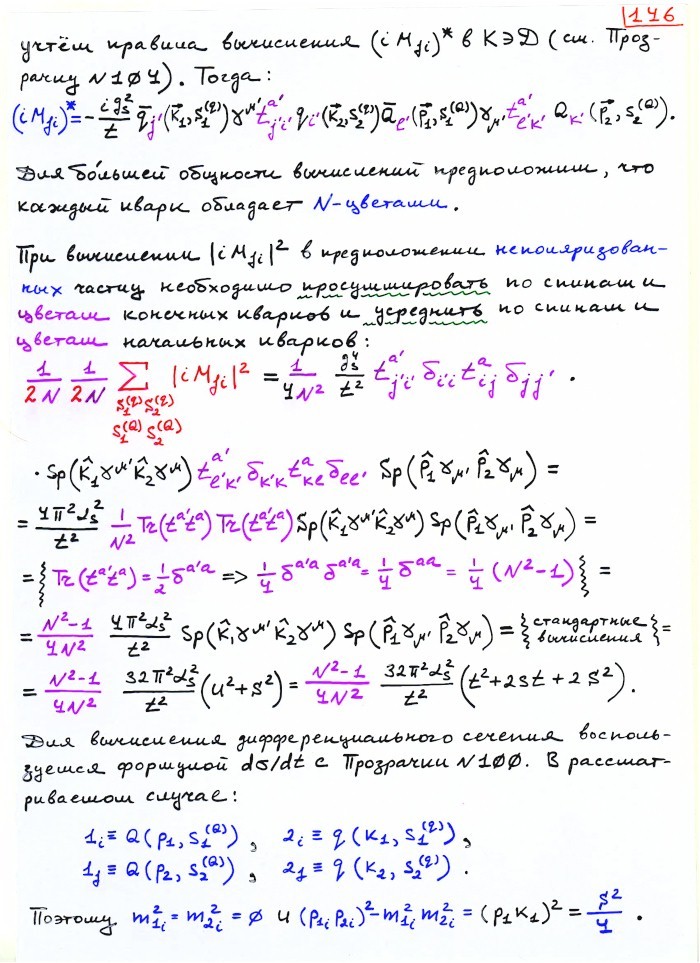 146
учтём правила вычисления (iM_fi)* в КЭД (см. Проз-
рачку N1ø4). Тогда:
(iM_fi)* = - i g_s²/t q̄_j'(k⃗₁, s₁^(q)) γ^μ' t^a'_j'i' q_i'(k⃗₂, s₂^(q)) Q̄_ℓ'(p⃗₁, s₁^(Q)) γ_μ' t^a'_ℓ'k' Q_k'(p⃗₂, s₂^(Q)).
Для бо́льшей общности вычислений предположим, что
каждый кварк обладает N-цветами.
При вычислении |iM_fi|² в предположении неполяризован-
ных частиц необходимо просуммировать по спинам и
цветам конечных кварков и усреднить по спинам и
цветам начальных кварков:
1/2N 1/2N Σ_{s₁^(q) s₂^(q) s₁^(Q) s₂^(Q)} |iM_fi|² = 1/4N² g_s⁴/t² t^a'_j'i' δ_ii t^a_ij δ_jj' ·
· Sp(k̂₁γ^μ' k̂₂γ^μ) t^a'_ℓ'k' δ_k'k t^a_kℓ δ_ℓℓ' Sp(p̂₁γ_μ' p̂₂γ_μ) =
= 4π²α_s²/t² 1/N² Tr(t^a' t^a) Tr(t^a' t^a) Sp(k̂₁γ^μ' k̂₂γ^μ) Sp(p̂₁γ_μ' p̂₂γ_μ) =
= { Tr(t^a' t^a) = 1/2 δ^a'a => 1/4 δ^a'a δ^a'a = 1/4 δ^aa = 1/4 (N²-1) } =
= N²-1/4N² 4π²α_s²/t² Sp(k̂₁γ^μ' k̂₂γ^μ) Sp(p̂₁γ_μ' p̂₂γ_μ) = { стандартные вычисления } =
= N²-1/4N² 32π²α_s²/t² (u²+s²) = N²-1/4N² 32π²α_s²/t² (t²+2st+2s²).
Для вычисления дифференциального сечения восполь-
зуемся формулой dσ/dt с Прозрачки N1øø. В рассмат-
риваемом случае:
1_i ≡ Q(p₁, s₁^(Q)), 2_i ≡ q(k₁, s₁^(q)),
1_f ≡ Q(p₂, s₂^(Q)), 2_f ≡ q(k₂, s₂^(q)).
Поэтому m²_1i = m²_2i = ø и (p_1i p_2i)² - m²_1i m²_2i = (p₁k₁)² = s²/4.